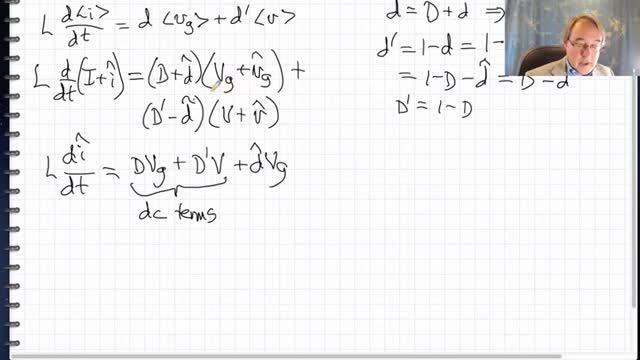 L d<i>/dt = d <v_g> + d' <v>
L d/dt (I + î) = (D + d̂)(V_g + v̂_g) +
(D' - d̂)(V + v̂)
L dî/dt = DV_g + D'V + d̂V_g
dc terms
d = D + d̂ ⇒
d' = 1 - d = 1 -
= 1 - D - d̂ = D' - d̂
D' = 1 - D